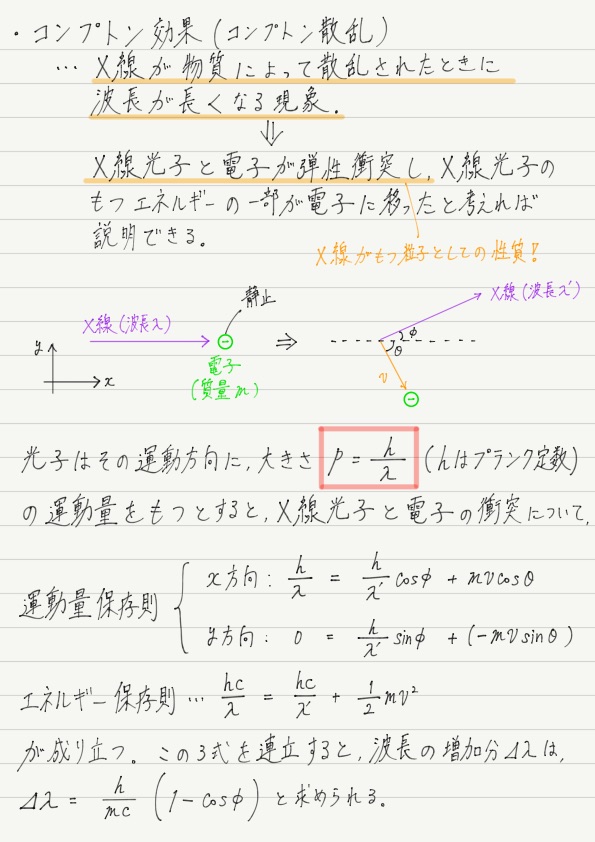 ・コンプトン効果(コンプトン散乱)
… X線が物質によって散乱されたときに
波長が長くなる現象.
⇓
X線光子と電子が弾性衝突し, X線光子の
もつエネルギーの一部が電子に移ったと考えれば
説明できる。
X線がもつ粒子としての性質!
静止
X線(波長λ')
X線(波長λ)
⊖ ⇒
φ
θ
y
電子
(質量m)
x
v
⊖
光子はその運動方向に, 大きさ p = h/λ (hはプランク定数)
の運動量をもつとすると, X線光子と電子の衝突について,
運動量保存則
x方向: h/λ = h/λ' cosφ + mvcosθ
y方向: 0 = h/λ' sinφ + (-mvsinθ)
エネルギー保存則… hc/λ = hc/λ' + 1/2 mv²
が成り立つ。この3式を連立すると, 波長の増加分Δλは,
Δλ = h/mc (1-cosφ) と求められる。